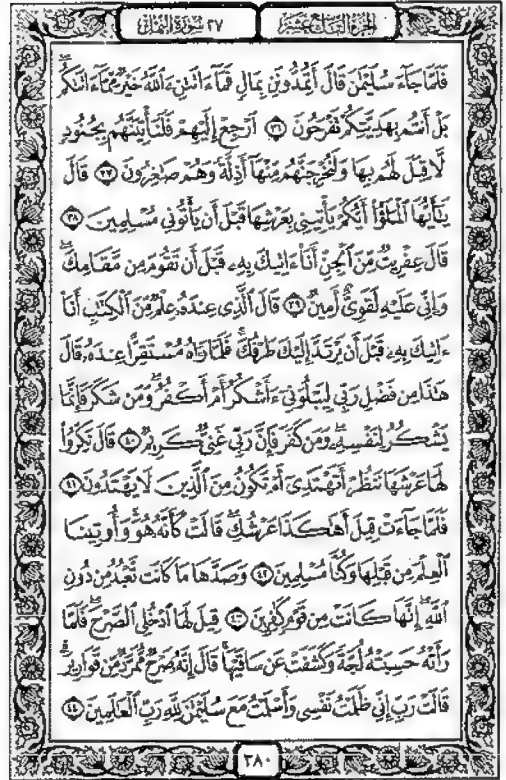 الجزء التاسع عشر ٢٧ سورة النمل
فَلَمَّا جَآءَ سُلَيْمَٰنَ قَالَ أَتُمِدُّونَنِ بِمَالٍ فَمَآ ءَاتَىٰنِۦَ ٱللَّهُ خَيْرٌ مِّمَّآ ءَاتَىٰكُم
بَلْ أَنتُم بِهَدِيَّتِكُمْ تَفْرَحُونَ ٣٦ ٱرْجِعْ إِلَيْهِمْ فَلَنَأْتِيَنَّهُم بِجُنُودٍ
لَّا قِبَلَ لَهُم بِهَا وَلَنُخْرِجَنَّهُم مِّنْهَآ أَذِلَّةً وَهُمْ صَٰغِرُونَ ٣٧ قَالَ
يَٰٓأَيُّهَا ٱلْمَلَؤُا۟ أَيُّكُمْ يَأْتِينِى بِعَرْشِهَا قَبْلَ أَن يَأْتُونِى مُسْلِمِينَ ٣٨
قَالَ عِفْرِيتٌ مِّنَ ٱلْجِنِّ أَنَا۠ ءَاتِيكَ بِهِۦ قَبْلَ أَن تَقُومَ مِن مَّقَامِكَ ۖ
وَإِنِّى عَلَيْهِ لَقَوِىٌّ أَمِينٌ ٣٩ قَالَ ٱلَّذِى عِندَهُۥ عِلْمٌ مِّنَ ٱلْكِتَٰبِ أَنَا۠
ءَاتِيكَ بِهِۦ قَبْلَ أَن يَرْتَدَّ إِلَيْكَ طَرْفُكَ ۚ فَلَمَّا رَءَاهُ مُسْتَقِرًّا عِندَهُۥ قَالَ
هَٰذَا مِن فَضْلِ رَبِّى لِيَبْلُوَنِىٓ ءَأَشْكُرُ أَمْ أَكْفُرُ ۖ وَمَن شَكَرَ فَإِنَّمَا
يَشْكُرُ لِنَفْسِهِۦ ۖ وَمَن كَفَرَ فَإِنَّ رَبِّى غَنِىٌّ كَرِيمٌ ٤٠ قَالَ نَكِّرُوا۟
لَهَا عَرْشَهَا نَنظُرْ أَتَهْتَدِىٓ أَمْ تَكُونُ مِنَ ٱلَّذِينَ لَا يَهْتَدُونَ ٤١
فَلَمَّا جَآءَتْ قِيلَ أَهَٰكَذَا عَرْشُكِ ۖ قَالَتْ كَأَنَّهُۥ هُوَ ۚ وَأُوتِينَا
ٱلْعِلْمَ مِن قَبْلِهَا وَكُنَّا مُسْلِمِينَ ٤٢ وَصَدَّهَا مَا كَانَت تَّعْبُدُ مِن دُونِ
ٱللَّهِ ۖ إِنَّهَا كَانَتْ مِن قَوْمٍ كَٰفِرِينَ ٤٣ قِيلَ لَهَا ٱدْخُلِى ٱلصَّرْحَ ۖ فَلَمَّا
رَأَتْهُ حَسِبَتْهُ لُجَّةً وَكَشَفَتْ عَن سَاقَيْهَا ۚ قَالَ إِنَّهُۥ صَرْحٌ مُّمَرَّدٌ مِّن قَوَارِيرَ ۗ
قَالَتْ رَبِّ إِنِّى ظَلَمْتُ نَفْسِى وَأَسْلَمْتُ مَعَ سُلَيْمَٰنَ لِلَّهِ رَبِّ ٱلْعَٰلَمِينَ ٤٤
٣٨٠